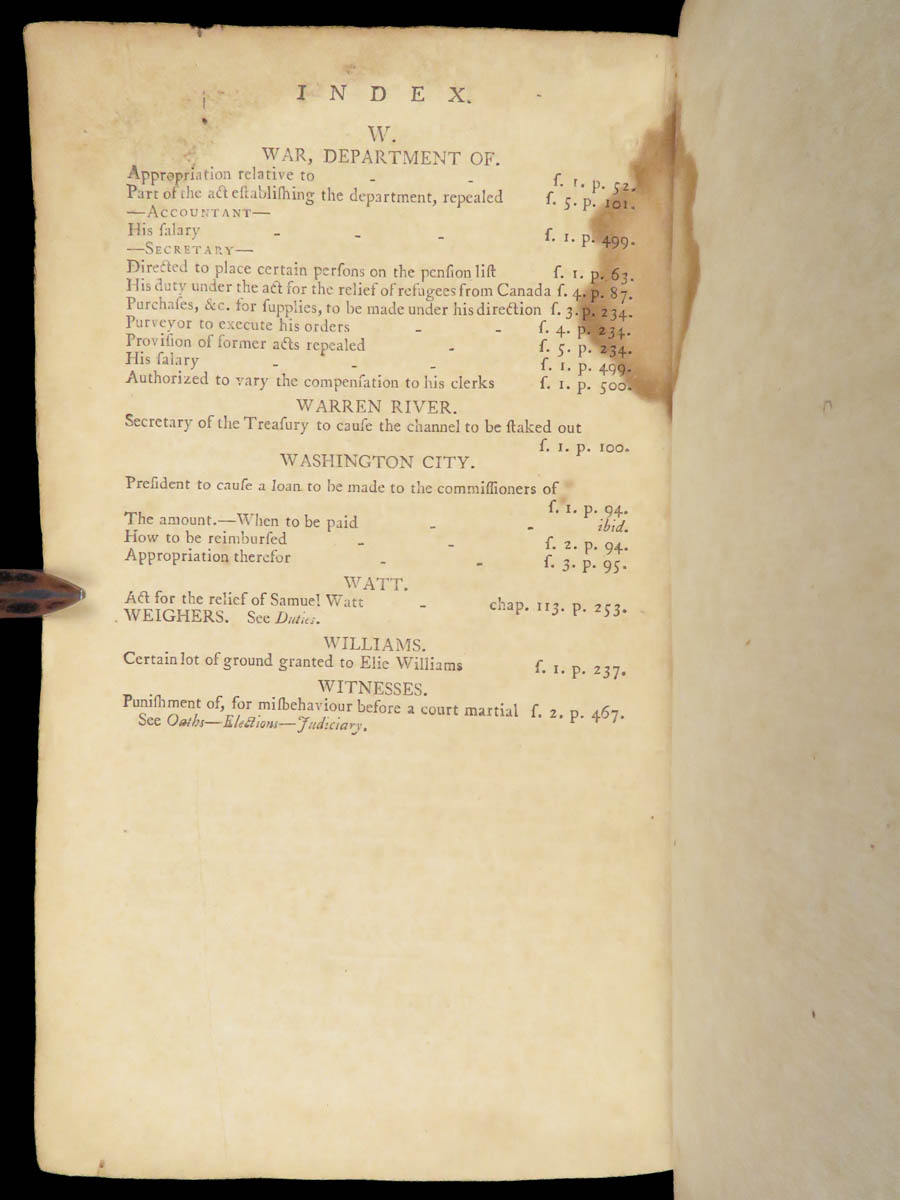 I N D E X.
W.
WAR, DEPARTMENT OF.
Appropriation relative to - - ſ. 1. p. 52.
Part of the act eſtabliſhing the department, repealed ſ. 5. p. 101.
—ACCOUNTANT—
His ſalary - - - ſ. 1. p. 499.
—SECRETARY—
Directed to place certain perſons on the penſion liſt ſ. 1. p. 63.
His duty under the act for the relief of refugees from Canada ſ. 4. p. 87.
Purchaſes, &c. for ſupplies, to be made under his direction ſ. 3. p. 234.
Purveyor to execute his orders - - ſ. 4. p. 234.
Proviſion of former acts repealed - ſ. 5. p. 234.
His ſalary - - - ſ. 1. p. 499.
Authorized to vary the compenſation to his clerks ſ. 1. p. 500.
WARREN RIVER.
Secretary of the Treaſury to cauſe the channel to be ſtaked out
ſ. 1. p. 100.
WASHINGTON CITY.
Preſident to cauſe a loan to be made to the commiſſioners of
ſ. 1. p. 94.
The amount.—When to be paid - - ibid.
How to be reimburſed - - ſ. 2. p. 94.
Appropriation therefor - - ſ. 3. p. 95.
WATT.
Act for the relief of Samuel Watt - chap. 113. p. 253.
WEIGHERS. See Duties.
WILLIAMS.
Certain lot of ground granted to Elie Williams ſ. 1. p. 237.
WITNESSES.
Puniſhment of, for miſbehaviour before a court martial ſ. 2. p. 467.
See Oaths—Elections—Judiciary.